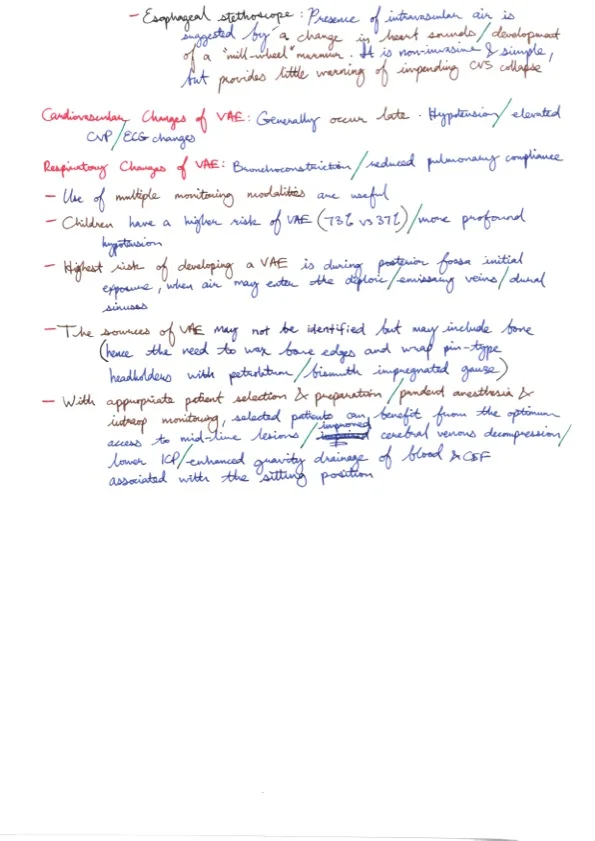 – Esophageal stethoscope : Presence of intravascular air is
suggested by a change in heart sounds / development
of a "mill-wheel" murmur. It is non-invasive & simple,
but provides little warning of impending CVS collapse
Cardiovascular Changes of VAE: Generally occur late. Hypotension / elevated
CVP / ECG changes
Respiratory Changes of VAE: Bronchoconstriction / reduced pulmonary compliance
– Use of multiple monitoring modalities are useful
– Children have a higher risk of VAE (73% vs 37%) / more profound
hypotension
– Highest risk of developing a VAE is during posterior fossa initial
exposure, when air may enter the diploic / emissary veins / dural
sinuses
– The sources of VAE may not be identified but may include bone
(hence the need to wax bone edges and wrap pin-type
headholders with petrolatum / bismuth impregnated gauze)
– With appropriate patient selection & preparation / prudent anesthesia &
intraop monitoring, selected patients can benefit from the optimum
access to mid-line lesions / improved cerebral venous decompression /
lower ICP / enhanced gravity drainage of blood & CSF
associated with the sitting position